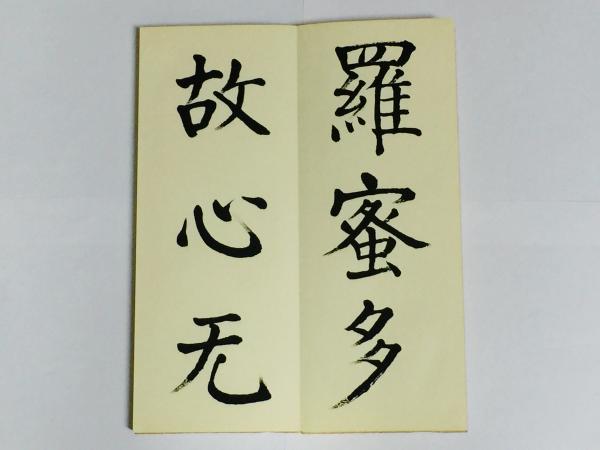 羅蜜多
故心无